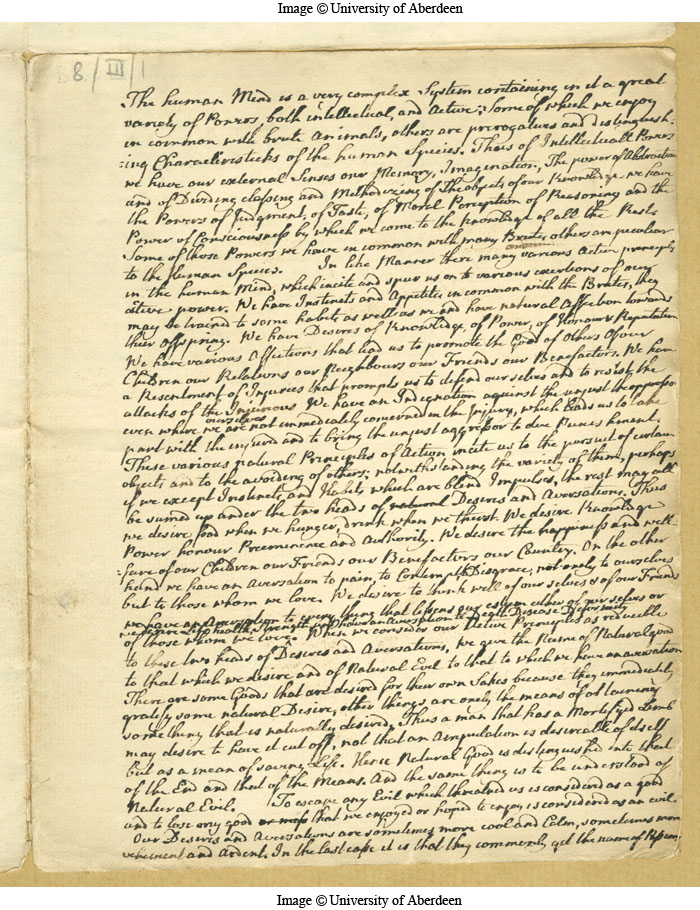 Image © University of Aberdeen
8/III/1
The human Mind is a very complex System containing in it a great
variety of Powers, both intellectual, and Active; Some of which we enjoy
in common with brute Animals, others are prerogatives and distinguish-
:ing Characteristicks of the human Species. Those of Intellectuall Powers
we have our external Senses our Memory, Imagination, The power of Abstraction
and of Dividing classing and Methodizing of The objects of our Knowledge we have
the Powers of Judgment, of Taste, of Moral Perception of Reasoning and the
Power of Consciousness by which we come to the knowledge of all the Rest.
Some of those Powers we have in common with many Brutes, others are peculiar
to the Human Species. In like Manner there many various Active principles
in the human Mind, which incite and spur us on to various exertions of our
active power. We have Instincts and Appetites in common with the Brutes, they
may be trained to some habits as well as we and have natural Affection towards
their offspring. We have Desires of Knowledge of Power, of Honour & Reputation
We have various Affections that lead us to promote the Good of others Of our
Children our Relations our Neighbours our Friends our Benefactors. We have
a Resentment of Injuries that prompts us to defend ourselves and to resist the
attacks of the Injurious. We have an Indignation against the unjust & oppressor
even where we ourselves are not immediately concerned in the Injury, which leads us to take
part with the injured and to bring the unjust aggressor to due Punishment,
These various natural Principles of Action incite us to the pursuit of certain
objects and to the avoiding of others; notwithstanding the variety of them, perhaps
if we except Instincts, and Habits, which are blind Impulses, the rest may all
be summed up under the two heads of natural Desires and Aversations. Thus
we desire food when we hunger, drink when we thirst. We desire Knowledge
Power honour Preeminence and Authority. We desire the happiness and well-
fare of our Children our Friends our Benefactors our Country. On the other
hand we have an Aversation to pain, to Contempt & Disgrace, not only to ourselves
but to those whom we love. We desire to think well of our selves & of our Friends
we have an Aversation to every thing that lessens our esteem either of ourselves or
we desire Life health & strength and have an aversation to Death Disease Deformity
of those whom we love. When we consider our Active Principles as reducible
to these two heads of Desires and Aversations, we give the Name of Natural good
to that which we desire and of Natural Evil to that to which we have an aversation
There are some Goods that are desired for their own Sakes because they immediately
gratify some natural Desire, other things are only the means of obtaining
something that is naturally desired, Thus a man that has a Mortifyd Limb
may desire to have it cut off, not that an Amputation is desireable of itself
but as a mean of saving Life. Hence Natural Good is distinguished into that
of the End and that of the Means. And the same thing is to be understood of
Natural Evil. To escape any Evil which threatned us is considered as a good
and to lose any good that we enjoyed or hoped to enjoy is considered as an evil
Our Desires and Aversations are sometimes more cool and Calm, sometimes more
vehement and Ardent. In the last case it is that they commonly get the name of Passions;
Image © University of Aberdeen